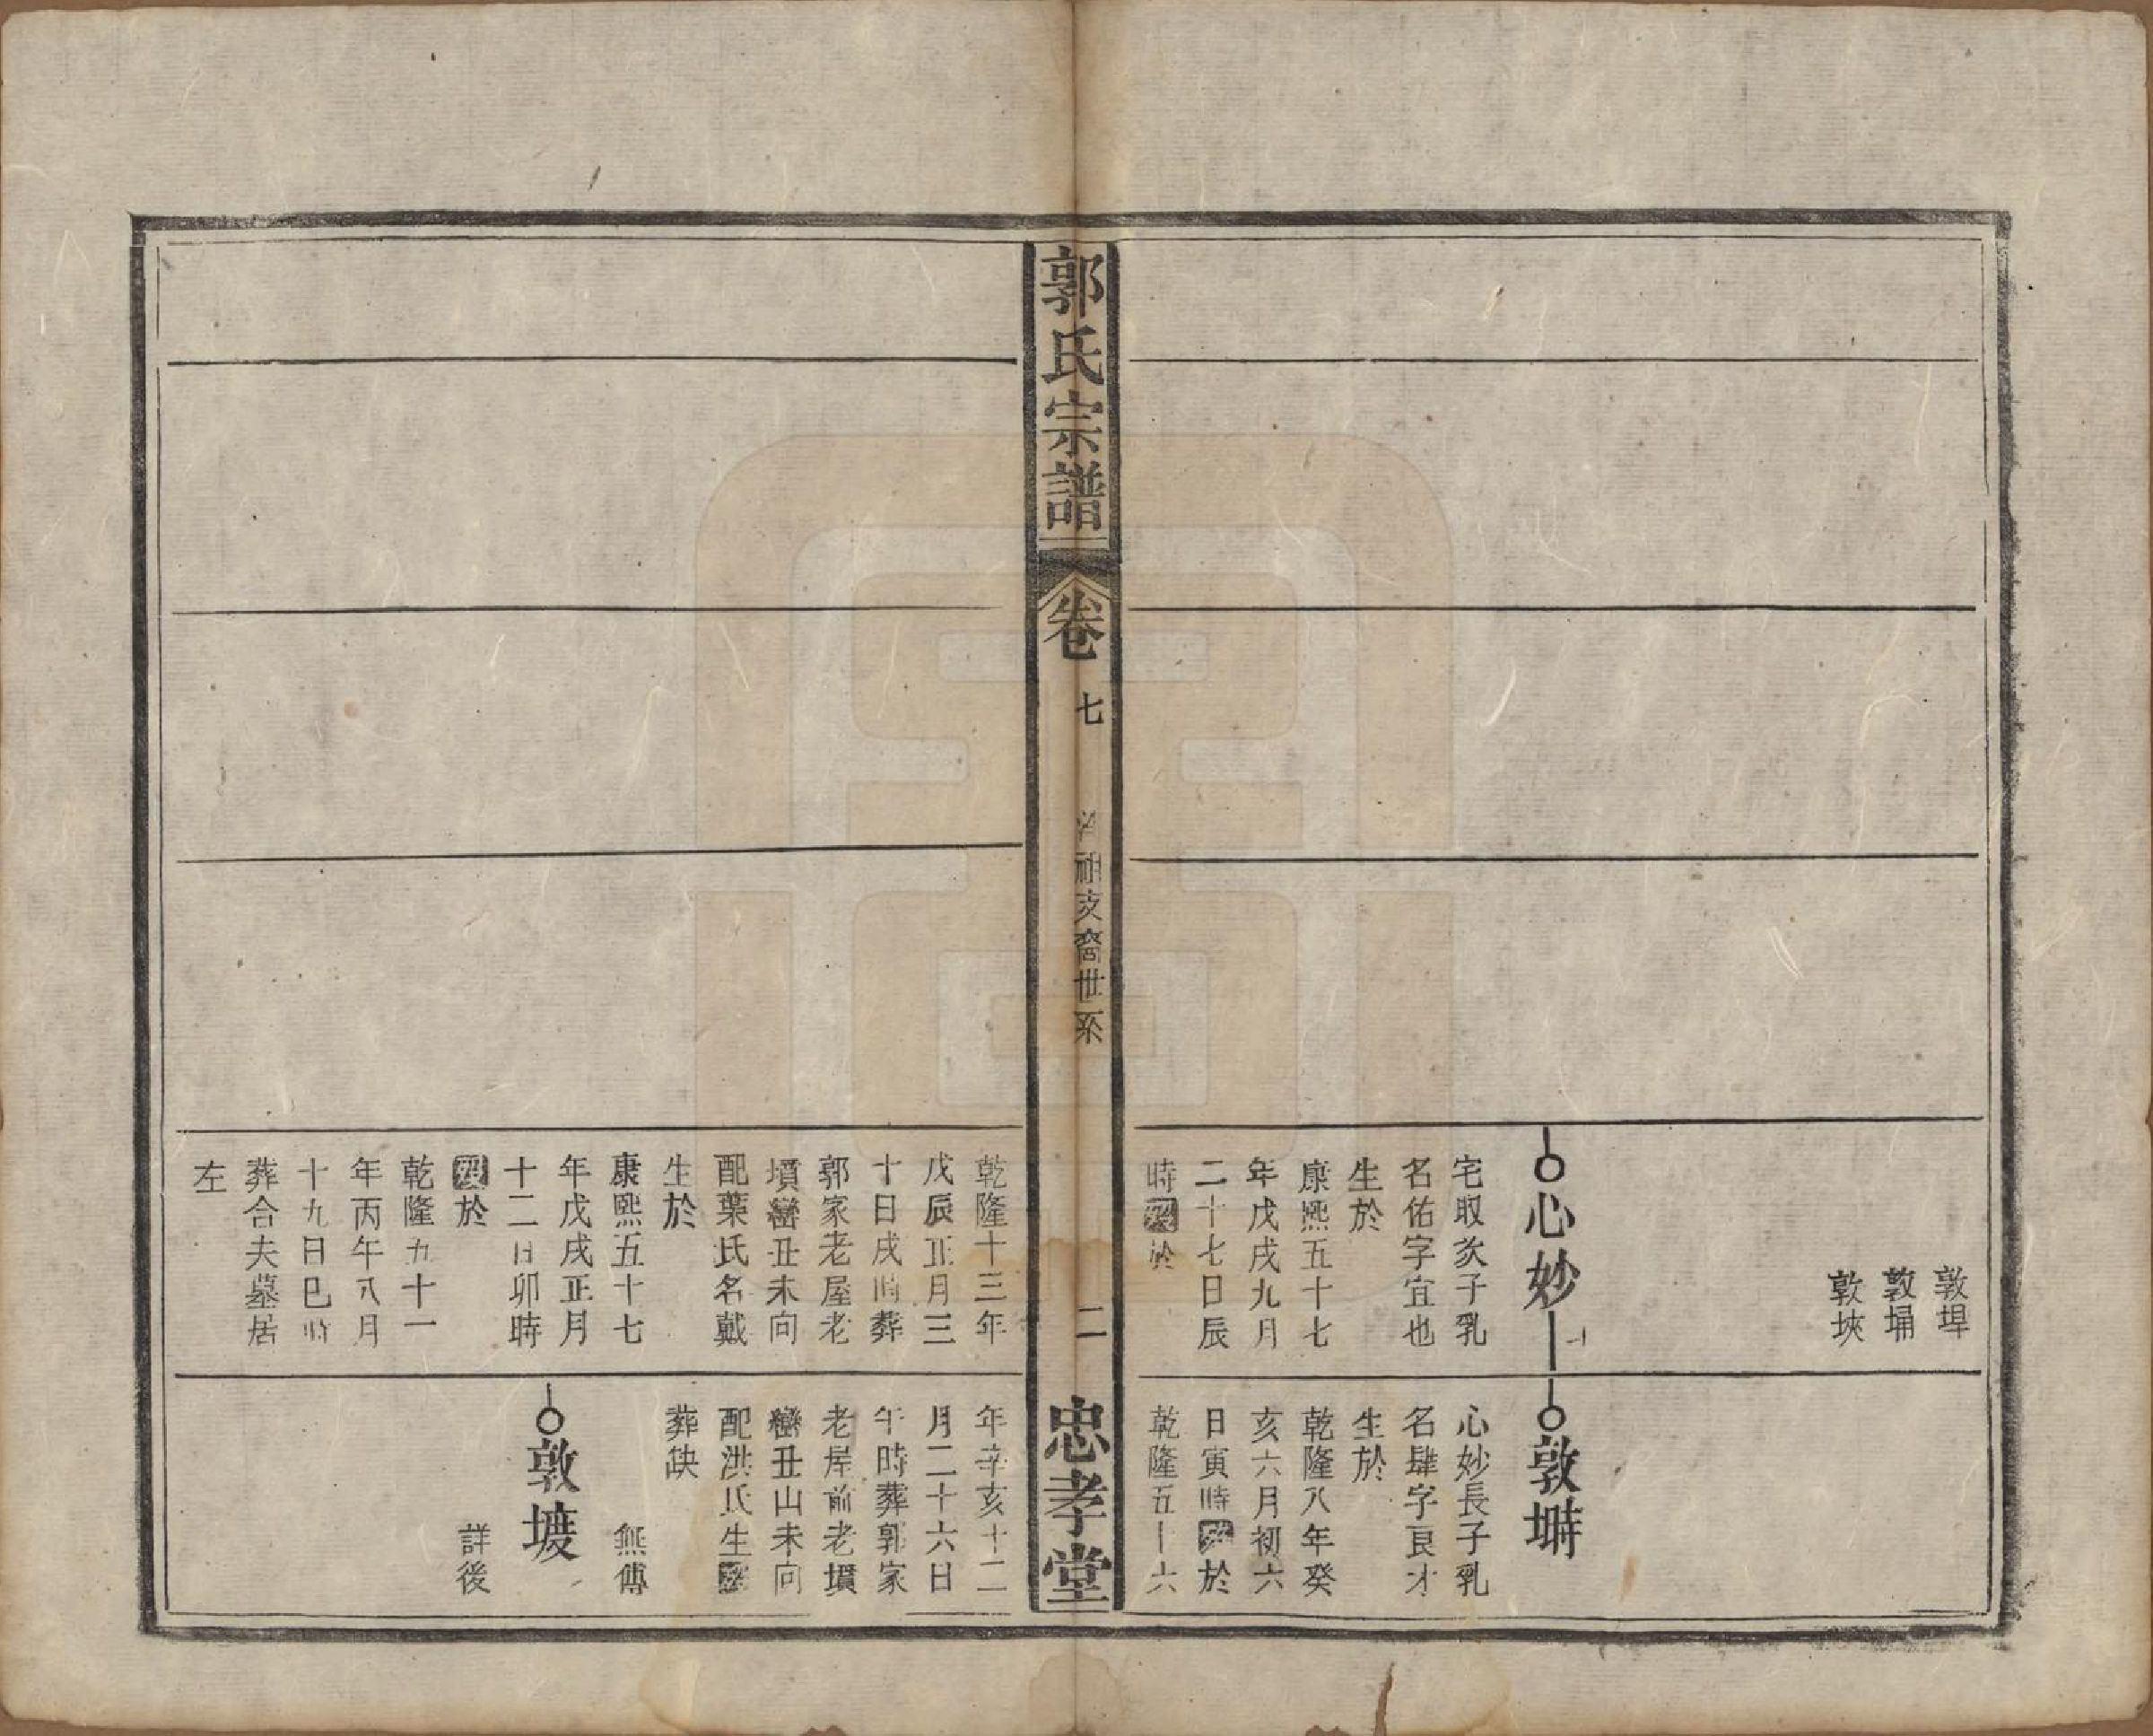 敦埠
敦埇
敦埉
心妙
宅取次子乳
名佑字宜也
生於
康熙五十七
年戊戌九月
二十七日辰
時殁於
敦塒
心妙長子乳
名肆字良才
生於
乾隆八年癸
亥六月初六
日寅時殁於
乾隆五十六
郭氏宗譜
卷七
祖支裔世系
二
忠孝堂
乾隆十三年
戊辰正月三
十日戌時葬
郭家老屋老
墳巒丑未向
配葉氏名戴
生於
康熙五十七
年戊戌正月
十二日卯時
殁於
乾隆五十一
年丙午八月
十九日巳時
葬合夫墓居
左
年辛亥十二
月二十六日
午時葬郭家
老屋前老墳
巒丑山未向
配洪氏生殁
葬缺
無傳
敦㙛
詳後